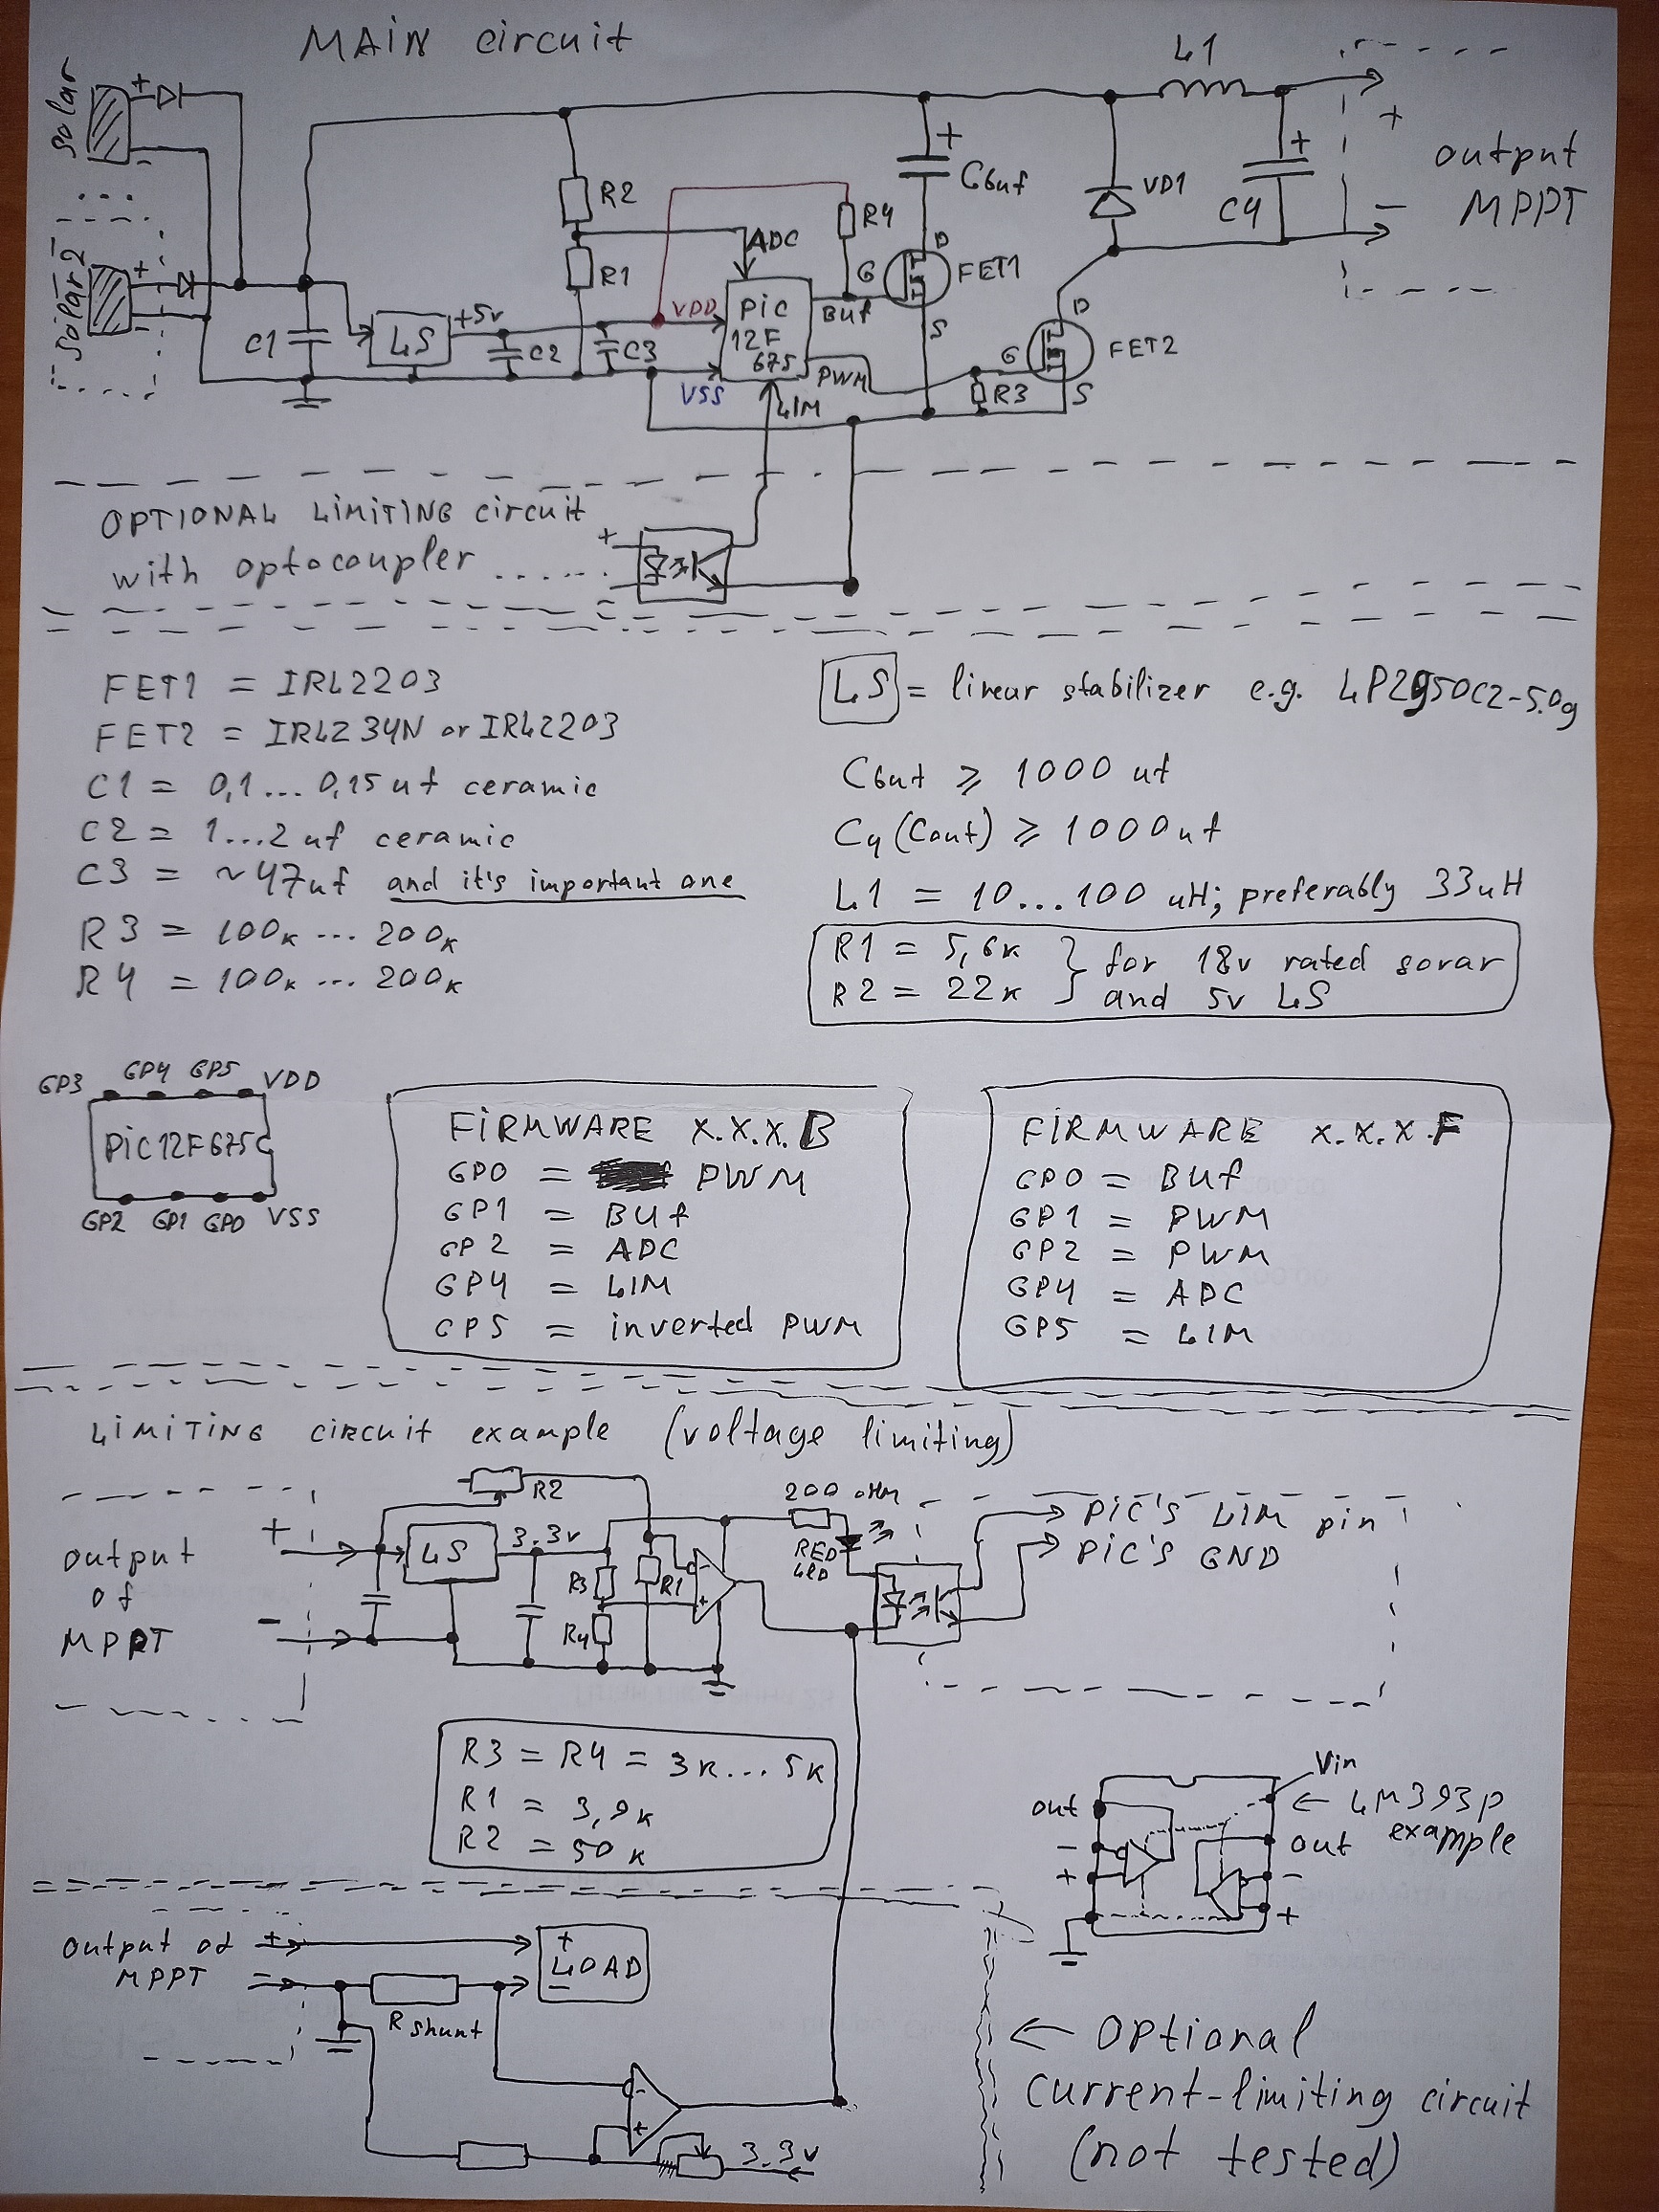 MAIN circuit
L1
Solar
+
-
Solar2
+
-
R2
R1
ADC
R4
+
Cbuf
VD1
+
C4
+
-
output
MPPT
C1
LS
+5v
C2
C3
VDD
VSS
PiC
12F
675
Buf
PWM
LIM
G
D
S
FET1
R3
G
D
S
FET2
OPTIONAL LIMITING circuit
with optocoupler ......
+
FET1 = IRL2203
FET2 = IRLZ34N or IRL2203
C1 = 0,1 ... 0,15 uf ceramic
C2 = 1...2 uf ceramic
C3 = ~47uf and it's important one
R3 = 100k ... 200k
R4 = 100k ... 200k
LS = linear stabilizer e.g. LP2950CZ-5.0g
Cbuf ⩾ 1000 uf
C4 (Cout) ⩾ 1000uf
L1 = 10...100 uH; preferably 33uH
R1 = 5,6k
R2 = 22k
} for 18v rated sorar
and 5v LS
GP3 GP4 GP5 VDD
PiC12F675
GP2 GP1 GP0 VSS
FiRMWARE x.x.x.B
GP0 = PWM
GP1 = BUf
GP2 = ADC
GP4 = LIM
GP5 = inverted PWM
FiRMWARE x.x.x.F
GP0 = BUf
GP1 = PWM
GP2 = PWM
GP4 = ADC
GP5 = LIM
LIMITING circuit example (voltage limiting)
output
of
MPPT
+
-
LS
3.3v
R2
R3
R4
R1
-
+
200 oHm
RED
LED
PiC'S LIM pin
PiC'S GND
R3 = R4 = 3k... 5k
R1 = 3,9k
R2 = 50k
Vin
out
-
+
← LM393p
example
out
-
+
output of
MPPT
+
-
R shunt
+
LOAD
-
-
+
3.3v
← Optional
current-limiting circuit
(not tested)